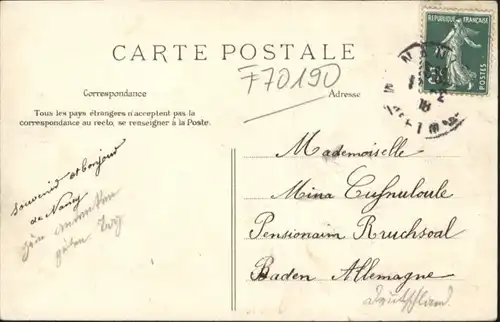 CARTE POSTALE
F70190
Correspondance
Adresse
Tous les pays étrangers n'acceptent pas la
correspondance au recto, se renseigner à la Poste.
RÉPUBLIQUE FRANÇAISE
POSTES
Souvenir et bonjour
de Nancy
guten
Mademoiselle
Mina
Pensionain Bruchsoal
Baden Allemagne
Deutschland.